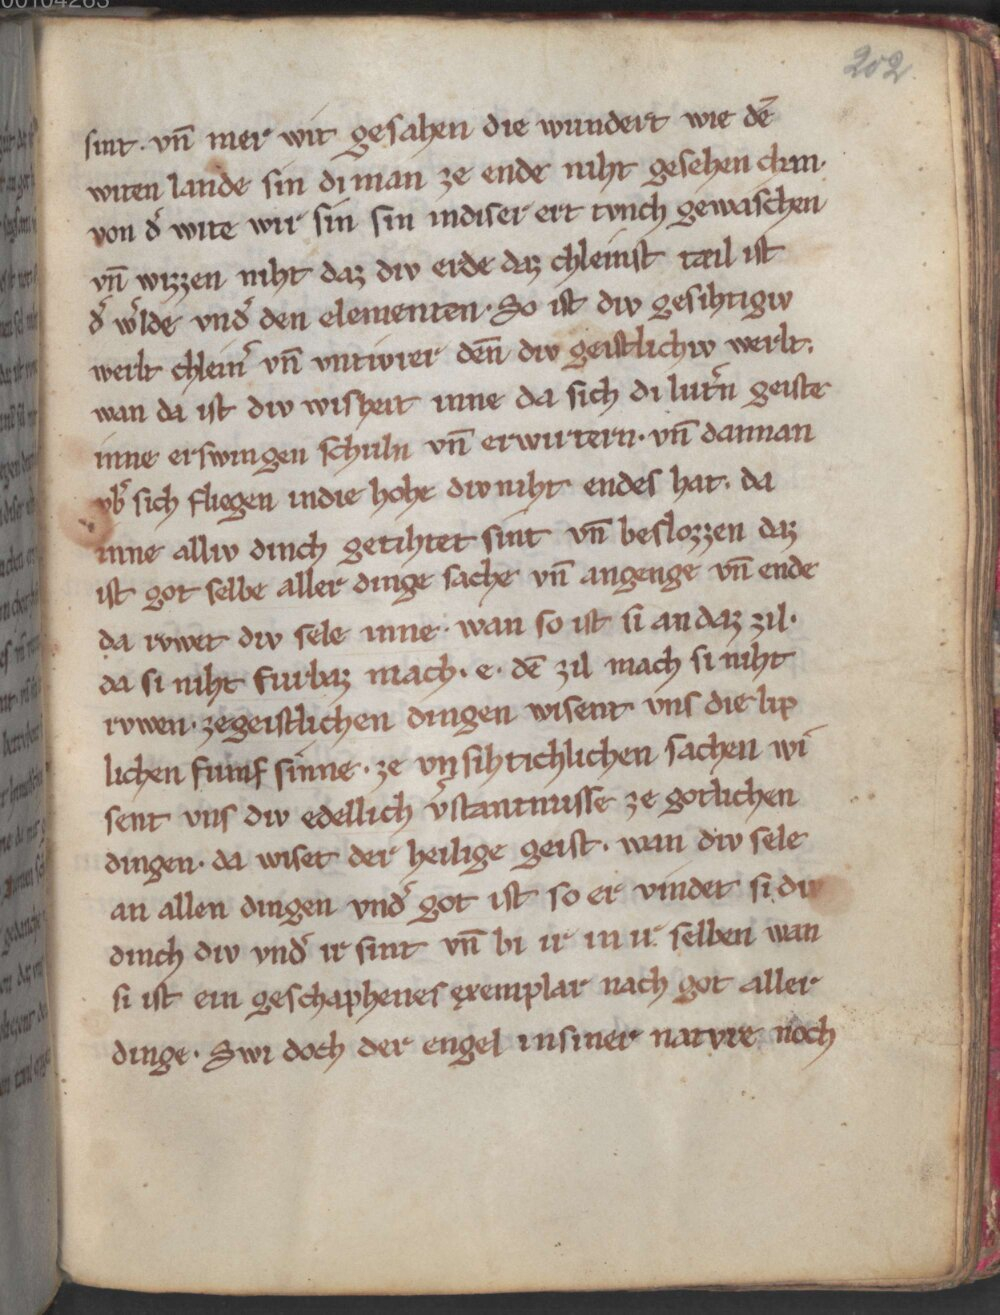 202
sint · vn̄ mer wir gesahen die wundert wie dē
witen lande sin di man ze ende niht gesehen chan·
von d᷎ wite wir sin sin indiser ert tvnch gewaschen
vn̄ wizzen niht daz div erde daz chleinst tæil ist
d᷎ w᷎lde vnd᷎ den elementen · So ist div gesihtigiv
werlt chlein᷎ vn̄ vntivrer deñ div geistlichiv werlt.
wan da ist div wisheit inne da sich di lut᷎n geiste
inne erswingen schuln vn̄ erwirtern · vn̄ dannan
vb᷎ sich fliegen indie hohe div niht endes hat. da
inne alliv dinch getihtet sint vn̄ beslozzen daz
ist got selbe aller dinge sache vn̄ angenge vn̄ ende
da rvwet div sele inne · wan so ist si an daz zil·
da si niht furbaz mach · e · dē zil mach si niht
rvwen · zegeistlichen dingen wisent vns die lip
lichen fumf sinne · ze vn sihtichlichen sachen wi
sent vns div edellich v᷎stantnusse ze gotlichen
dingen · da wiset der heilige geist · wan div sele
an allen dingen vnd᷎ got ist so er vindet si di
dinch div vnd᷎ ir sint vn̄ bi ir in ir selben wan
si ist ein geschaphenes exemplar nach got aller
dinge · Swi doch der engel insiner natvre noch